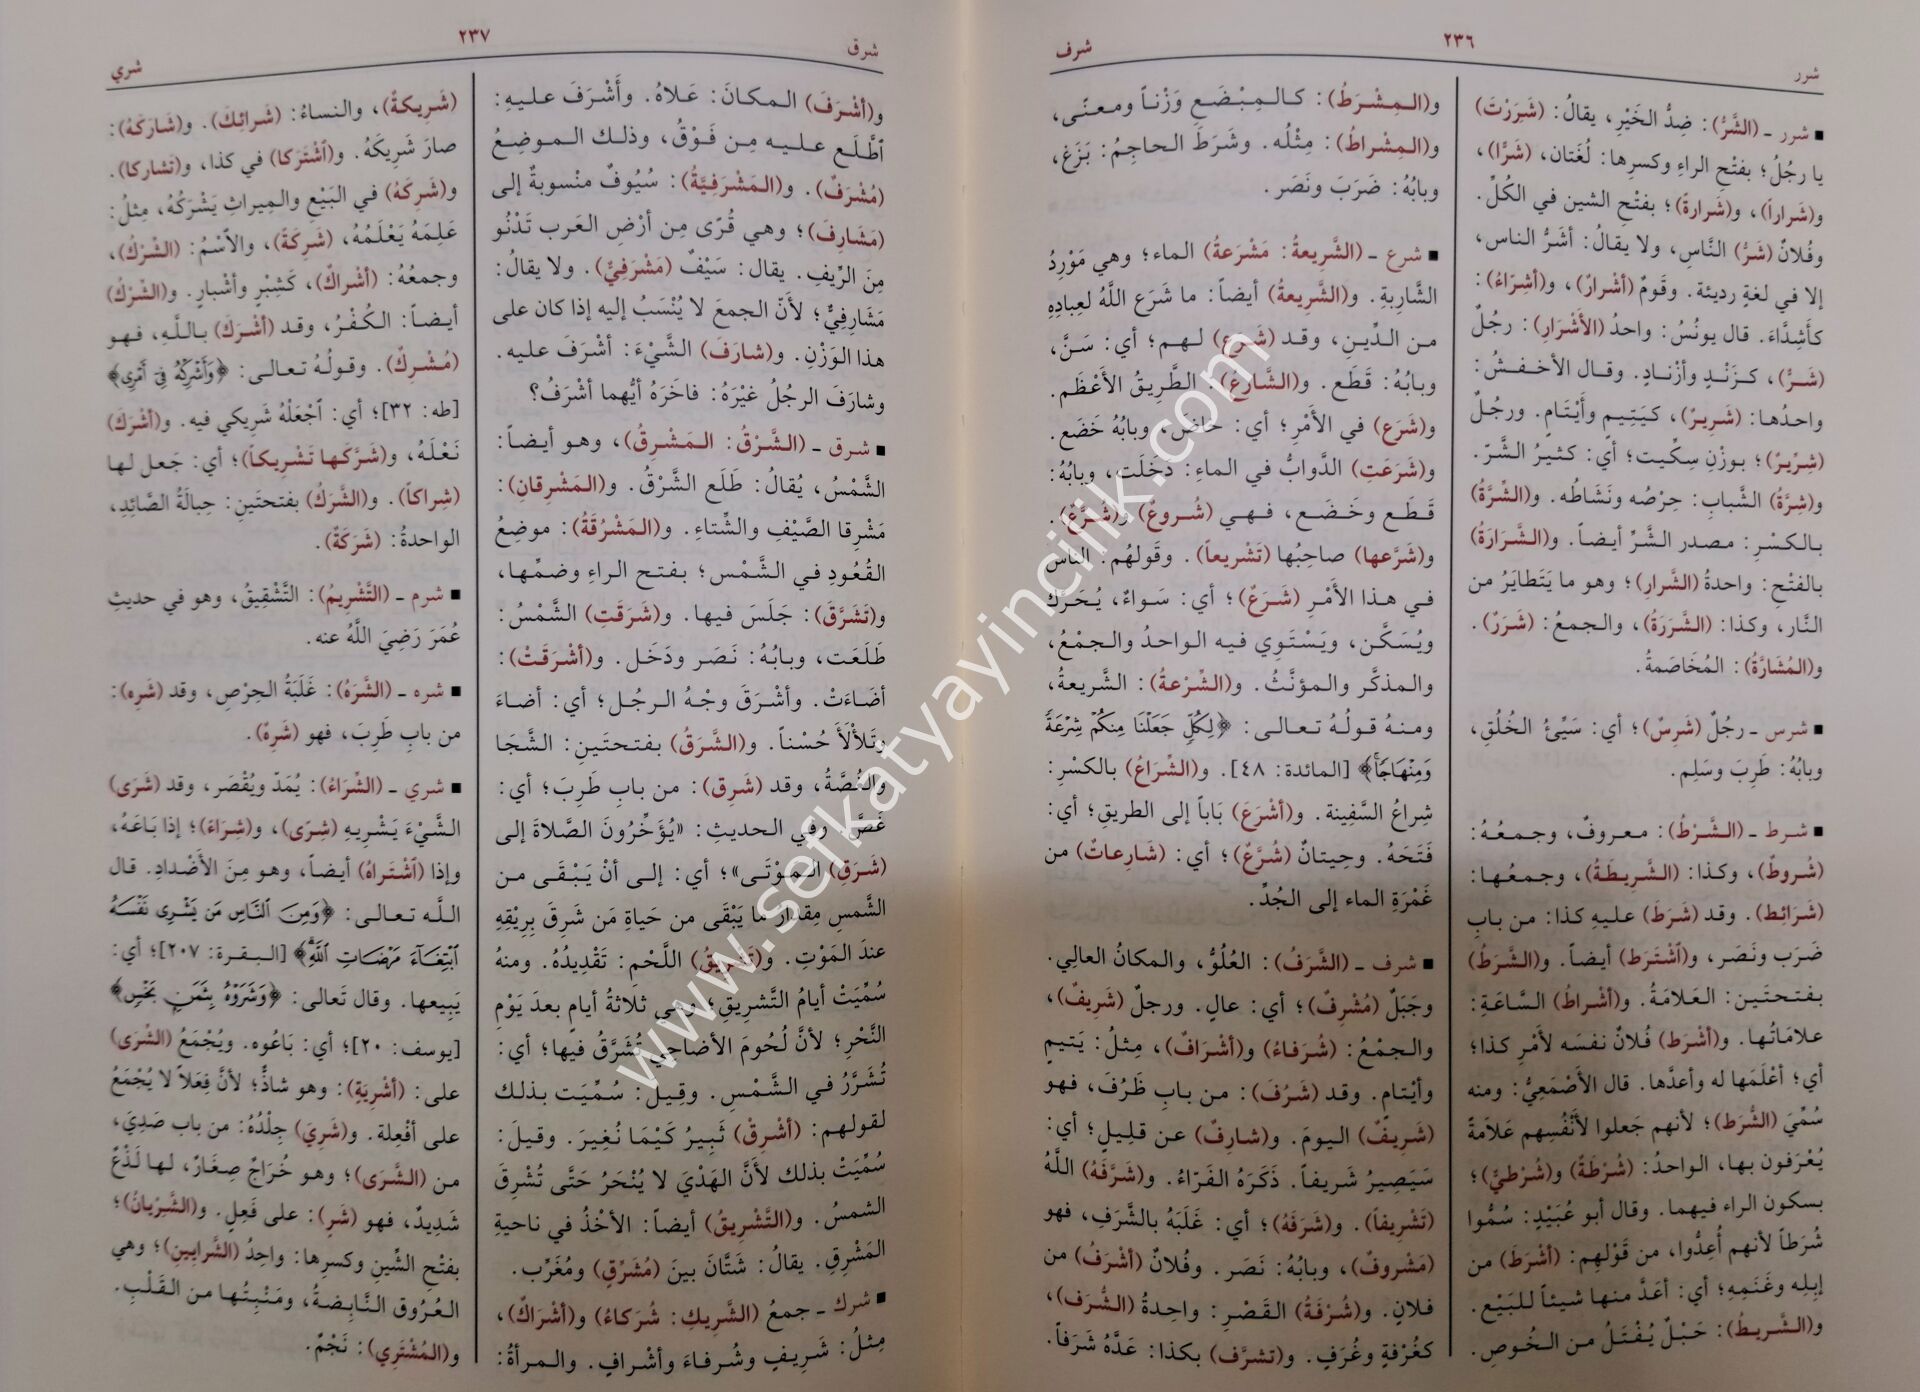 شرر
٢٣٦
شرف
■ شرر ـ (الشَّرُّ): ضِدُّ الخَيْرِ، يقالُ: (شَرَرْتَ)
يا رجُلُ؛ بفتْحِ الراءِ وكسرِها: لُغَتان، (شَرًّا)،
و(شَراراً)، و(شَرارةً)؛ بفتْحِ الشين في الكُلِّ.
وفُلانٌ (شَرُّ) النَّاسِ، ولا يقالُ: أشَرُّ الناس،
إلا في لغةٍ رديئة. وقَومٌ (أشْرارٌ)، و(أشِرّاءُ):
كأَشِدَّاءَ. قال يونُسُ: واحدُ (الأَشْرَارِ): رجُلٌ
(شَرٌّ)، كـزَنْدٍ وأزْنـادٍ. وقـال الأخـفـشُ:
واحدُها: (شَرِيرٌ)، كـيَتِيمٍ وأَيْتَامٍ. ورجُلٌ
(شِرِّيرٌ)؛ بوزْنِ سِكِّيت؛ أي: كثيرُ الشَّرّ.
و(شِرَّةُ) الشَّبابِ: حِرْصُه ونَشَاطُه. و(الشِّرَّةُ)
بـالكـسْرِ: مـصدر الشَّرِّ أيـضاً. و(الشَّرَارَةُ)
بالفتْحِ: واحدةُ (الشَّرارِ)؛ وهو ما يَتَطايَرُ من
النَّار، وكذا: (الشَّرَرَةُ)، والجمعُ: (شَرَرٌ).
و(المُشَارَّةُ): المُخَاصَمةُ.
■ شرس ـ رجُلٌ (شَرِسٌ)؛ أي: سَيِّئُ الخُلُقِ،
وبابُهُ: طَرِبَ وسَلِم.
■ شرط ـ (الشَّرْطُ): معروفٌ، وجمعُهُ:
(شُروطٌ)، وكذا: (الشَّرِيطَةُ)، وجمعُها:
(شَرَائِط). وقد (شَرَطَ) عليهِ كذا: من بابِ
ضَرَب ونَصَر، و(اشْتَرَط) أيضاً. و(الشَّرَطُ)
بـفـتـحـتَـين: العَـلامَـةُ. و(أشْراطُ) السَّاعَةِ:
علامَاتُها. و(أشْرَط) فُلانٌ نفسَه لأَمْرِ كذا؛
أي؛ أعْلَمَها له وأعدَّها. قال الأَصْمَعِيُّ: ومنه
سُمِّيَ (الشُّرَط)؛ لأنهم جَعلوا لأَنْفُسِهم عَلاَمَةً
يُعْرَفون بها، الواحدُ: (شُرْطَةٌ) و(شُرْطيٌّ)؛
بسكون الراء فيهما. وقال أبو عُبَيْدٍ: سُمُّوا
شُرَطاً لأنهم أُعِدُّوا، من قَوْلِهم: (أشْرَطَ) من
إبلِه وغَنَمِهِ؛ أي: أعَدَّ منها شيئاً للبَيْع.
و(الشَّريطُ): حَبْلٌ يُفْتَلُ من الخُوصِ.
و(الـمِشْرَطُ): كـالـمِبْضَعِ وَزْنـاً ومـعـنًى،
و(المِشْراطُ): مِثْلُه. وشَرَطَ الحاجِمُ: بَزَغَ،
وبابُهُ: ضَرَبَ ونَصَر.
■ شرع ـ (الشَّرِيعةُ: مَشْرَعةُ) الماء؛ وهي مَوْرِدُ
الشَّارِبةِ. و(الشَّرِيعةُ) أيضاً: ما شَرَع اللَّهُ لعِبادِهِ
من الدِّينِ، وقد (شَرَع) لهم؛ أي: سَنَّ،
وبابُهُ: قَطَع. و(الشَّارِعُ): الطَّرِيقُ الأَعْظَم.
و(شَرَع) في الأمْرِ؛ أي: خاضَ، وبابُهُ خَضَع.
و(شَرَعَتِ) الدَّوابُّ في الماءِ: دَخَلَت، وبابُهُ:
قَطَع وخَضَع، فهي (شُروعٌ) و(شُرَّعٌ).
و(شَرَّعها) صاحِبُها (تَشْريعاً). وقَولُهُم. الناسُ
في هذا الأَمْرِ (شَرَعٌ)؛ أي: سَواءٌ، يُحَرَّك
ويُسَكَّن، ويَسْتَوِي فيه الواحدُ والجمْعُ،
والمذكَّر والمؤنَّثُ. و(الشِّرْعةُ): الشَّرِيعةُ،
ومنهُ قولُهُ تعالى: ﴿لِكُلٍّ جَعَلْنَا مِنكُمْ شِرْعَةً
وَمِنْهَاجًا﴾ [المائدة: ٤٨]. و(الشِّرَاعُ) بالكسْرِ:
شِراعُ السَّفِينة. و(أشْرَعَ) بَاباً إلى الطريقِ؛ أي:
فَتَحَهُ. وحِيتانٌ (شُرَّعٌ)؛ أي: (شَارِعاتٌ) من
غَمْرَةِ الماء إلى الجُدِّ.
■ شرف ـ (الشَّرَفُ): العُلُوُّ، والمكانُ العالِي.
وجَبَلٌ (مُشْرِفٌ)؛ أي: عالٍ. ورجلٌ (شَرِيفٌ)،
والجمْعُ: (شُرَفاءُ) و(أشْرَافٌ)، مِثلُ: يَتيمٍ
وأيْتامٍ. وقد (شَرُفَ): من بابِ ظَرُفَ، فهو
(شَرِيفٌ) اليومَ. و(شارِفٌ) عن قليلٍ؛ أي:
سَيَصِيرُ شَريفاً. ذَكَرَهُ الفَرّاءُ. و(شَرَّفَهُ) اللَّهُ
(تَشْرِيفاً). و(شَرَفَهُ)؛ أي: غَلَبَهُ بالشَّرَفِ، فهو
(مَشْروفٌ)، وبابُهُ: نَصَر. وفُلانٌ (أشْرَفُ) من
فلانٍ. و(شُرْفَةُ) القَصْرِ: واحِدةُ (الشُّرَف)،
كغُرْفةٍ وغُرَفٍ. و(تشرَّف) بكذا: عَدَّهُ شَرَفاً.
شرق
٢٣٧
شري
و(أشْرَفَ) المكانَ: عَلاهُ. وأَشْرَفَ عليهِ:
اطَّلَع عليه مِن فَوْقُ، وذلك الموضِعُ
(مُشْرَفٌ). و(المَشْرَفِيَّةُ): سُيُوفٌ منْسوبةٌ إلى
(مَشَارِفَ)؛ وهي قُرًى مِن أرْضِ العَرب تَدْنُو
مِنَ الرِّيفِ. يقال: سَيْفٌ (مَشْرَفِيٌّ). ولا يقالُ:
مَشَارِفيٌّ؛ لأنّ الجمعَ لا يُنْسَبُ إليه إذا كان على
هذا الوَزْنِ. و(شارَفَ) الشَّيْءَ: أشْرَفَ عليه.
وشارَفَ الرجلُ غيْرَهُ: فاخَرَهُ أيُّهما أشْرَفُ؟
■ شرق ـ (الشَّرْقُ: المَشْرِقُ)، وهو أيضاً:
الشَّمْسُ، يُقالُ: طَلَع الشَّرْقُ. و(المَشْرِقانِ):
مَشْرِقا الصَّيْفِ والشِّتاءِ. و(المَشْرُقَةُ): موضِعُ
القُعُودِ في الشَّمْسِ؛ بفتحِ الراءِ وضمِّها،
و(تَشَرَّقَ): جَلَسَ فيها. و(شَرَقَتِ) الشَّمْسُ:
طَلَعَت، وبابُهُ: نَصَر ودَخَل. و(أشْرَقَتْ):
أضَاءَتْ. وأشْرَقَ وجْهُ الرجُل؛ أي: أضاءَ
وتَلأْلأَ حُسْناً. و(الشَّرَقُ) بفتحتَينِ: الشَّجَا
والغُصَّةُ، وقد (شَرِقَ): من بابِ طَرِبَ؛ أي:
غَصَّ. وفي الحديثِ: «يُؤَخِّرُونَ الصَّلاةَ إلى
(شَرَقِ) المَوْتَى»؛ أي: إلى أنْ يَبْقَى من
الشَّمسِ مِقدارُ ما يَبْقَى من حَياةِ مَن شَرِقَ بِرِيْقِهِ
عندَ المَوْتِ. و(تَشْرِيقُ) اللَّحْمِ: تَقْدِيدُهُ. ومنهُ
سُمِّيَتْ أيامُ التَّشريقِ؛ وهي ثلاثةُ أيامٍ بعدَ يَوْمِ
النَّحْرِ؛ لأنَّ لُحُومَ الأضاحي تُشَرَّقُ فيها؛ أي:
تُشَرَّرُ في الشَّمْسِ. وقِيلَ: سُمِّيَت بذلك
لقولهم: (أشْرِقْ) ثَبِيرُ كَيْمَا نُغِيرَ. وقيلَ:
سُمِّيَتْ بذلك لأَنَّ الهَدْيَ لا يُنْحَرُ حَتَّى تُشْرِقَ
الشمسُ. و(التَّشْرِيقُ) أيضاً: الأخْذُ في ناحيةِ
المَشْرِقِ. يقالُ: شَتَّانَ بينَ (مُشَرِّقٍ) ومُغَرِّب.
■ شرك ـ جمعُ (الشَّرِيكِ: شُرَكاءُ) و(أشْرَاكٌ)،
مِثلُ: شَرِيفٍ وشُرفاءَ وأشْرافٍ. والمرأةُ:
(شَرِيكةٌ)، والنساءُ: (شَرائِكَ). و(شَارَكَهُ):
صارَ شَرِيكَهُ. و(اشْتَرَكا) في كذا، و(تَشاركا).
و(شَرِكَهُ) في البَيْعِ والميراثِ يَشْرَكُهُ، مِثلُ:
عَلِمَهُ يَعْلَمُهُ، (شَرِكَةً)، والاسْمُ: (الشِّرْكُ)،
وجمعُهُ: (أشْراكٌ)، كَشِبْرٍ وأشْبارٍ. و(الشِّرْكُ)
أيضاً: الكُفْرُ، وقد (أشْرَكَ) باللَّهِ، فهو
(مُشْرِكٌ). وقولُهُ تعالى: ﴿وَأَشْرِكْهُ فِىٓ أَمْرِى﴾
[طه: ٣٢]؛ أي: اجْعَلْهُ شَرِيكي فيه. و(أشْرَكَ)
نَعْلَهُ، و(شَرَّكَها تَشْرِيكاً)؛ أي: جَعل لها
(شِراكاً). و(الشَّرَكُ) بفتحتَينِ: حِبالَةُ الصَّائِدِ،
الواحدةُ: (شَرَكَةٌ).
■ شرم ـ (التَّشْرِيمُ): التَّشْقِيقُ، وهو في حديثِ
عُمَرَ رَضِيَ اللَّهُ عنه.
■ شره ـ (الشَّرَهُ): غَلَبَةُ الحِرْصِ، وقد (شَرِهَ):
من بابِ طَرِبَ، فهو (شَرِهٌ).
■ شري ـ (الشِّرَاءُ): يُمَدّ ويُقْصَر، وقد (شَرَى)
الشَّيْءَ يَشْرِيهِ (شِرًى)، و(شِرَاءً)؛ إذا بَاعَهُ،
وإذا (اشْتَراهُ) أيضاً، وهو مِنَ الأَضْدادِ. قال
اللّه تعالى: ﴿وَمِنَ النَّاسِ مَن يَشْرِى نَفْسَهُ
ابْتِغَاءَ مَرْضَاتِ اللَّهِ﴾ [البقرة: ٢٠٧]؛ أي:
يَبِيعها. وقال تَعالى: ﴿وَشَرَوْهُ بِثَمَنٍ بَخْسٍ﴾
[يوسف: ٢٠]؛ أي: بَاعُوه. ويُجْمَعُ (الشِّرَى)
على: (أشْرِيَةٍ): وهو شاذٌّ؛ لأنَّ فِعَلاً لا يُجْمَعُ
على أفْعِلة. و(شَرِيَ) جِلْدُهُ: من باب صَدِيَ،
من (الشَّرَى)؛ وهو خُرَاجٌ صِغَارٌ، لها لَذْعٌ
شَدِيدٌ، فهو (شَرٍ): على فَعِلٍ. و(الشَّرْيَانُ)؛
بفتْحِ الشِّينِ وكسرِها: واحِدُ (الشَّرايينِ)؛ وهي
العُرُوق النَّابِضةُ، ومَنْبِتُها من القَلْبِ.
و(المُشْتَرِي): نَجْمٌ.
www.sefkatyayincilik.com